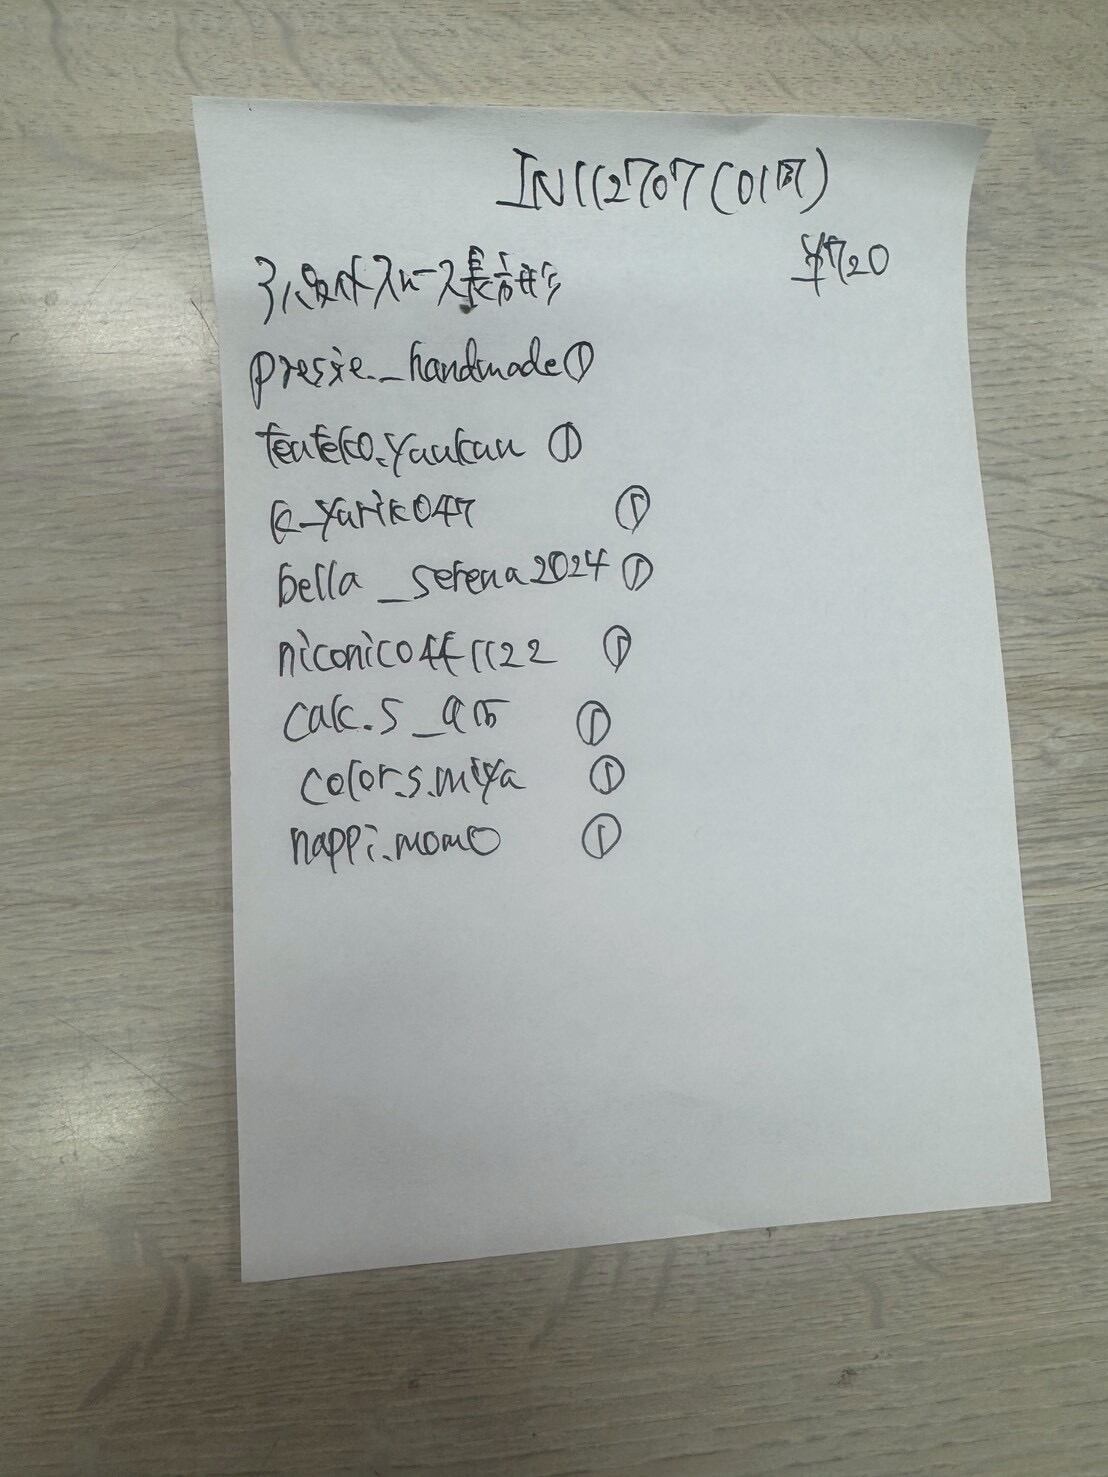 IN112707(01図)
¥720
引伸スペース長方形
presie._handmade①
tenteko.yankan ①
k_yuriko47 ①
bella_serena2024 ①
niconico441122 ①
calc.5_915 ①
color.s.miya ①
nappi.momo ①